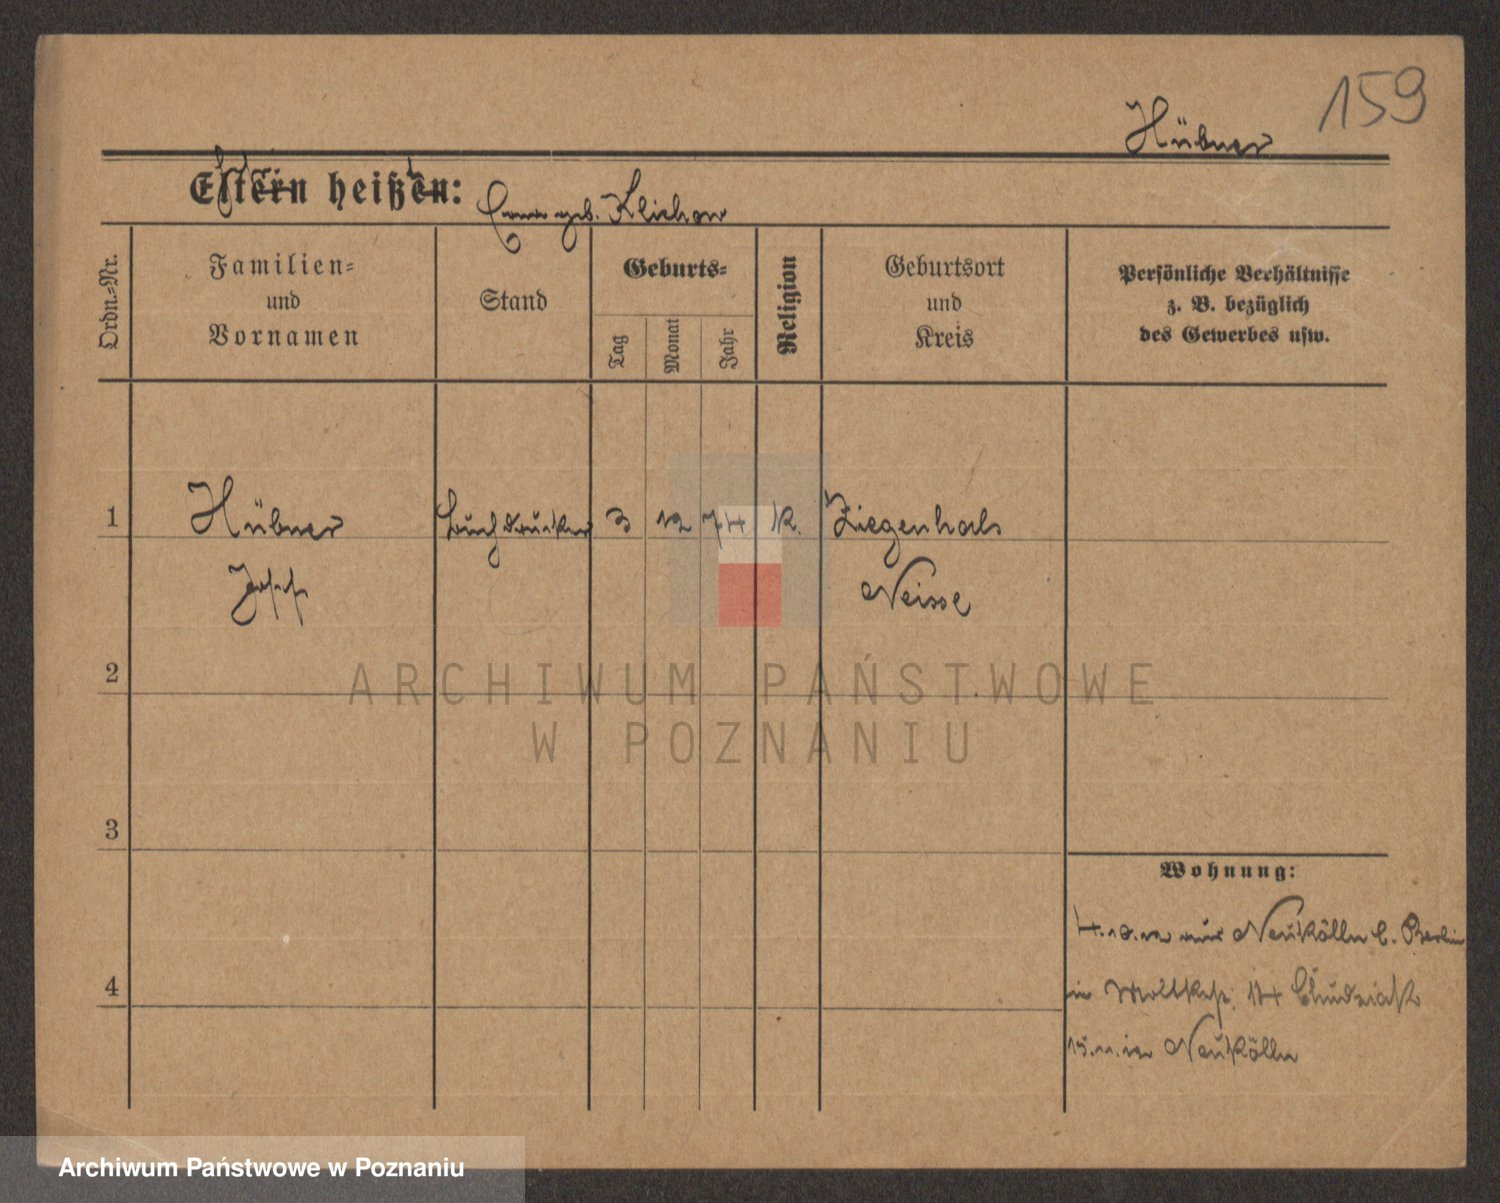 159
Hübner
Eltern heißen:
geb. Klichow
Ordn.-Nr.
Familien-
und
Vornamen
Stand
Geburts-
Tag
Monat
Jahr
Religion
Geburtsort
und
Kreis
Persönliche Verhältnisse
z. B. bezüglich
des Gewerbes usw.
1
Hübner
Buchdrucker
3
12
74
k.
Ziegenhals
Josef
Neisse
2
ARCHIWUM PAŃSTWOWE
W POZNANIU
3
Wohnung:
4.10.12 aus Neukölln b. Berlin
4
in Moltkestr. 14 Chudziak
15.11.12 Neukölln
Archiwum Państwowe w Poznaniu